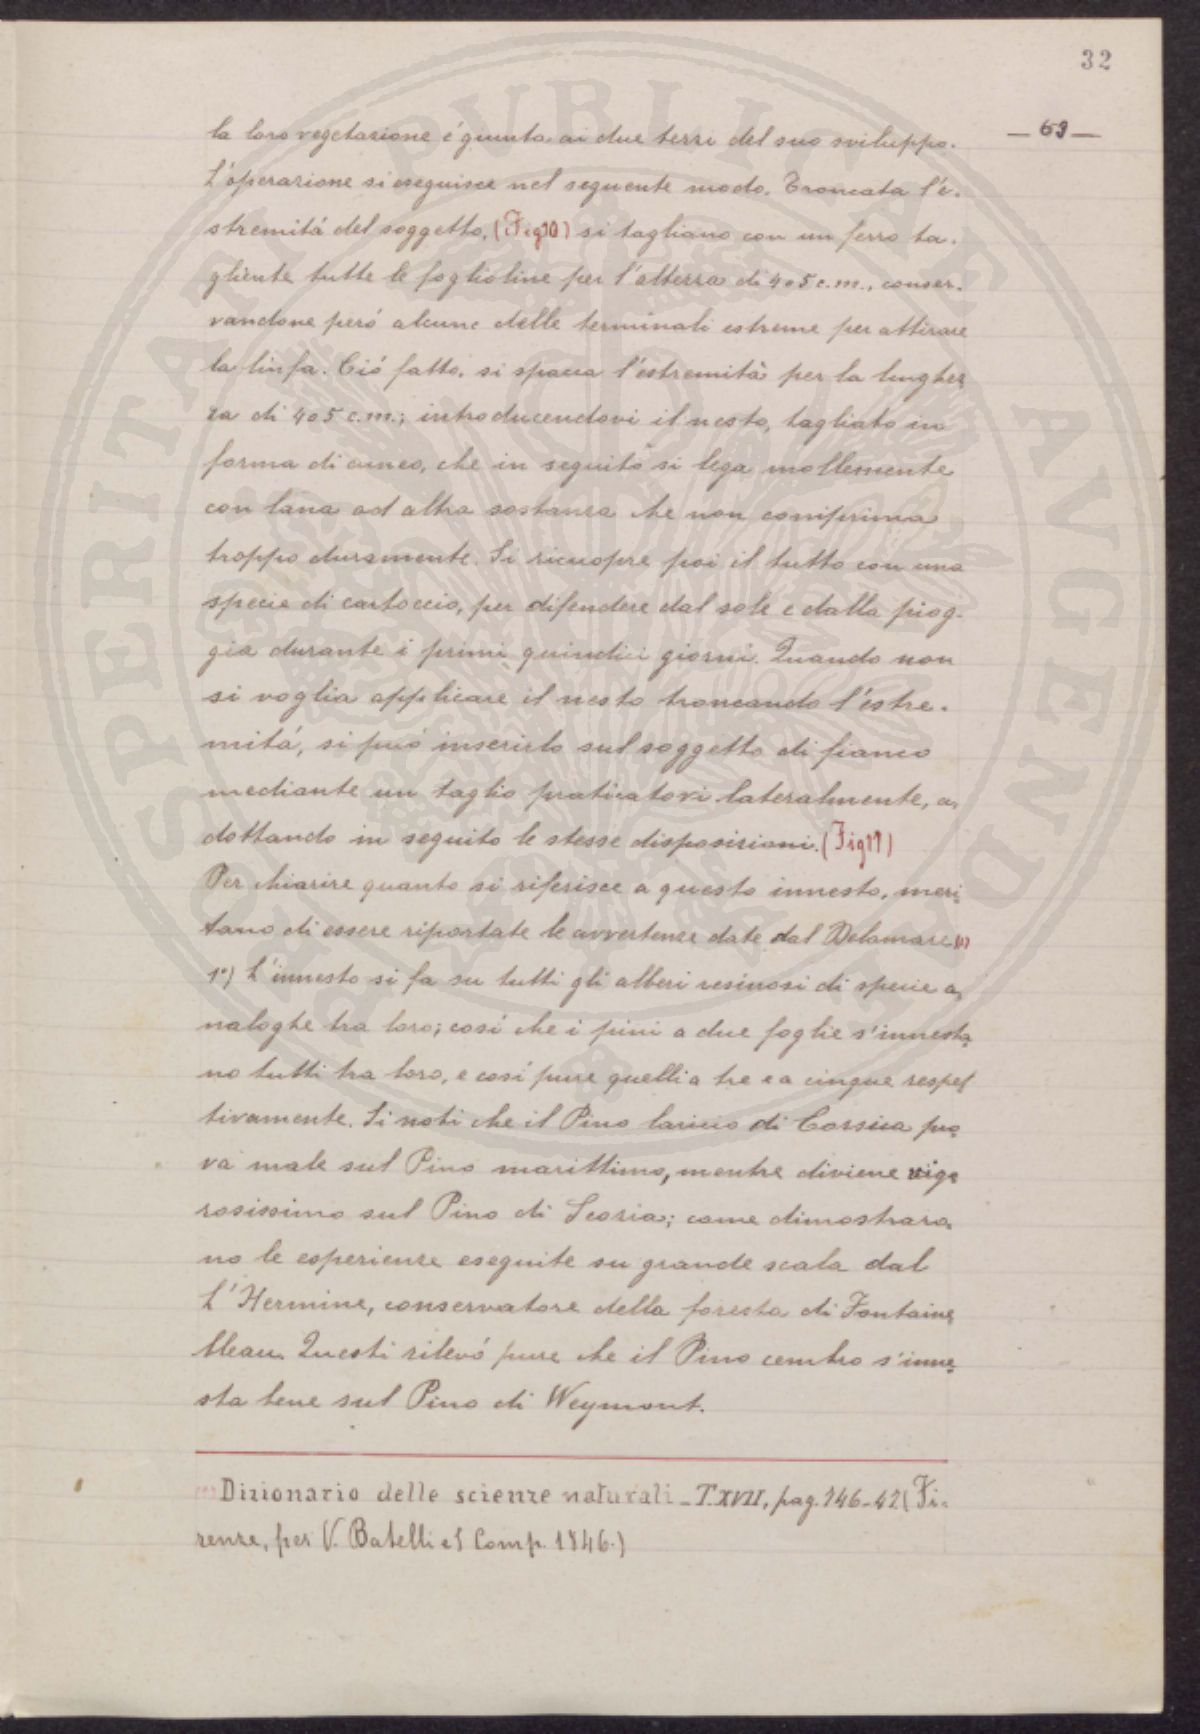 32
— 63 —
la loro vegetazione é giunta ai due terzi del suo sviluppo.
L'operazione si eseguisce nel seguente modo. Troncata l'e-
stremitá del soggetto, (Fig 10) si tagliano con un ferro ta-
gliente tutte le foglioline per l'altezza di 4 o 5 c.m., conser-
vandone peró alcune delle terminali estreme per attirare
la linfa. Ció fatto, si spacca l'estremitá per la lunghez-
za di 4 o 5 c.m.; introducendovi il nesto, tagliato in
forma di cuneo, che in seguito si lega mollemente
con lana od altra sostanza che non comprima
troppo duramente. Si ricuopre poi il tutto con una
specie di cartoccio, per difendere dal sole e dalla piog-
gia durante i primi quindici giorni. Quando non
si voglia applicare il nesto troncando l'estre-
mitá, si può inserirlo sul soggetto di fianco
mediante un taglio praticatovi lateralmente, a-
dottando in seguito le stesse disposizioni. (Fig 11)
Per chiarire quanto si riferisce a questo innesto, meri-
tano di essere riportate le avvertenze date dal Delamare (1)
1°) L'innesto si fa su tutti gli alberi resinosi di specie a-
naloghe tra loro; cosí che i pini a due foglie s'innesta-
no tutti tra loro, e cosí pure quelli a tre e a cinque rispet
tivamente. Si noti che il Pino laricio di Corsica pro-
va male sul Pino marittimo, mentre diviene vigo-
rosissimo sul Pino di Scozia; come dimostraro-
no le esperienze eseguite su grande scala dal
L'Hermine, conservatore della foresta di Fontaine-
bleau. Questi rilevó pure che il Pino cembro s'inne-
sta bene sul Pino di Weymout.
(1) Dizionario delle scienze naturali - T. XVII, pag. 246-42 (Fi-
renze, per V. Batelli e C Comp. 1846.)
SPERITATI PVBLICAE AVGENDAE